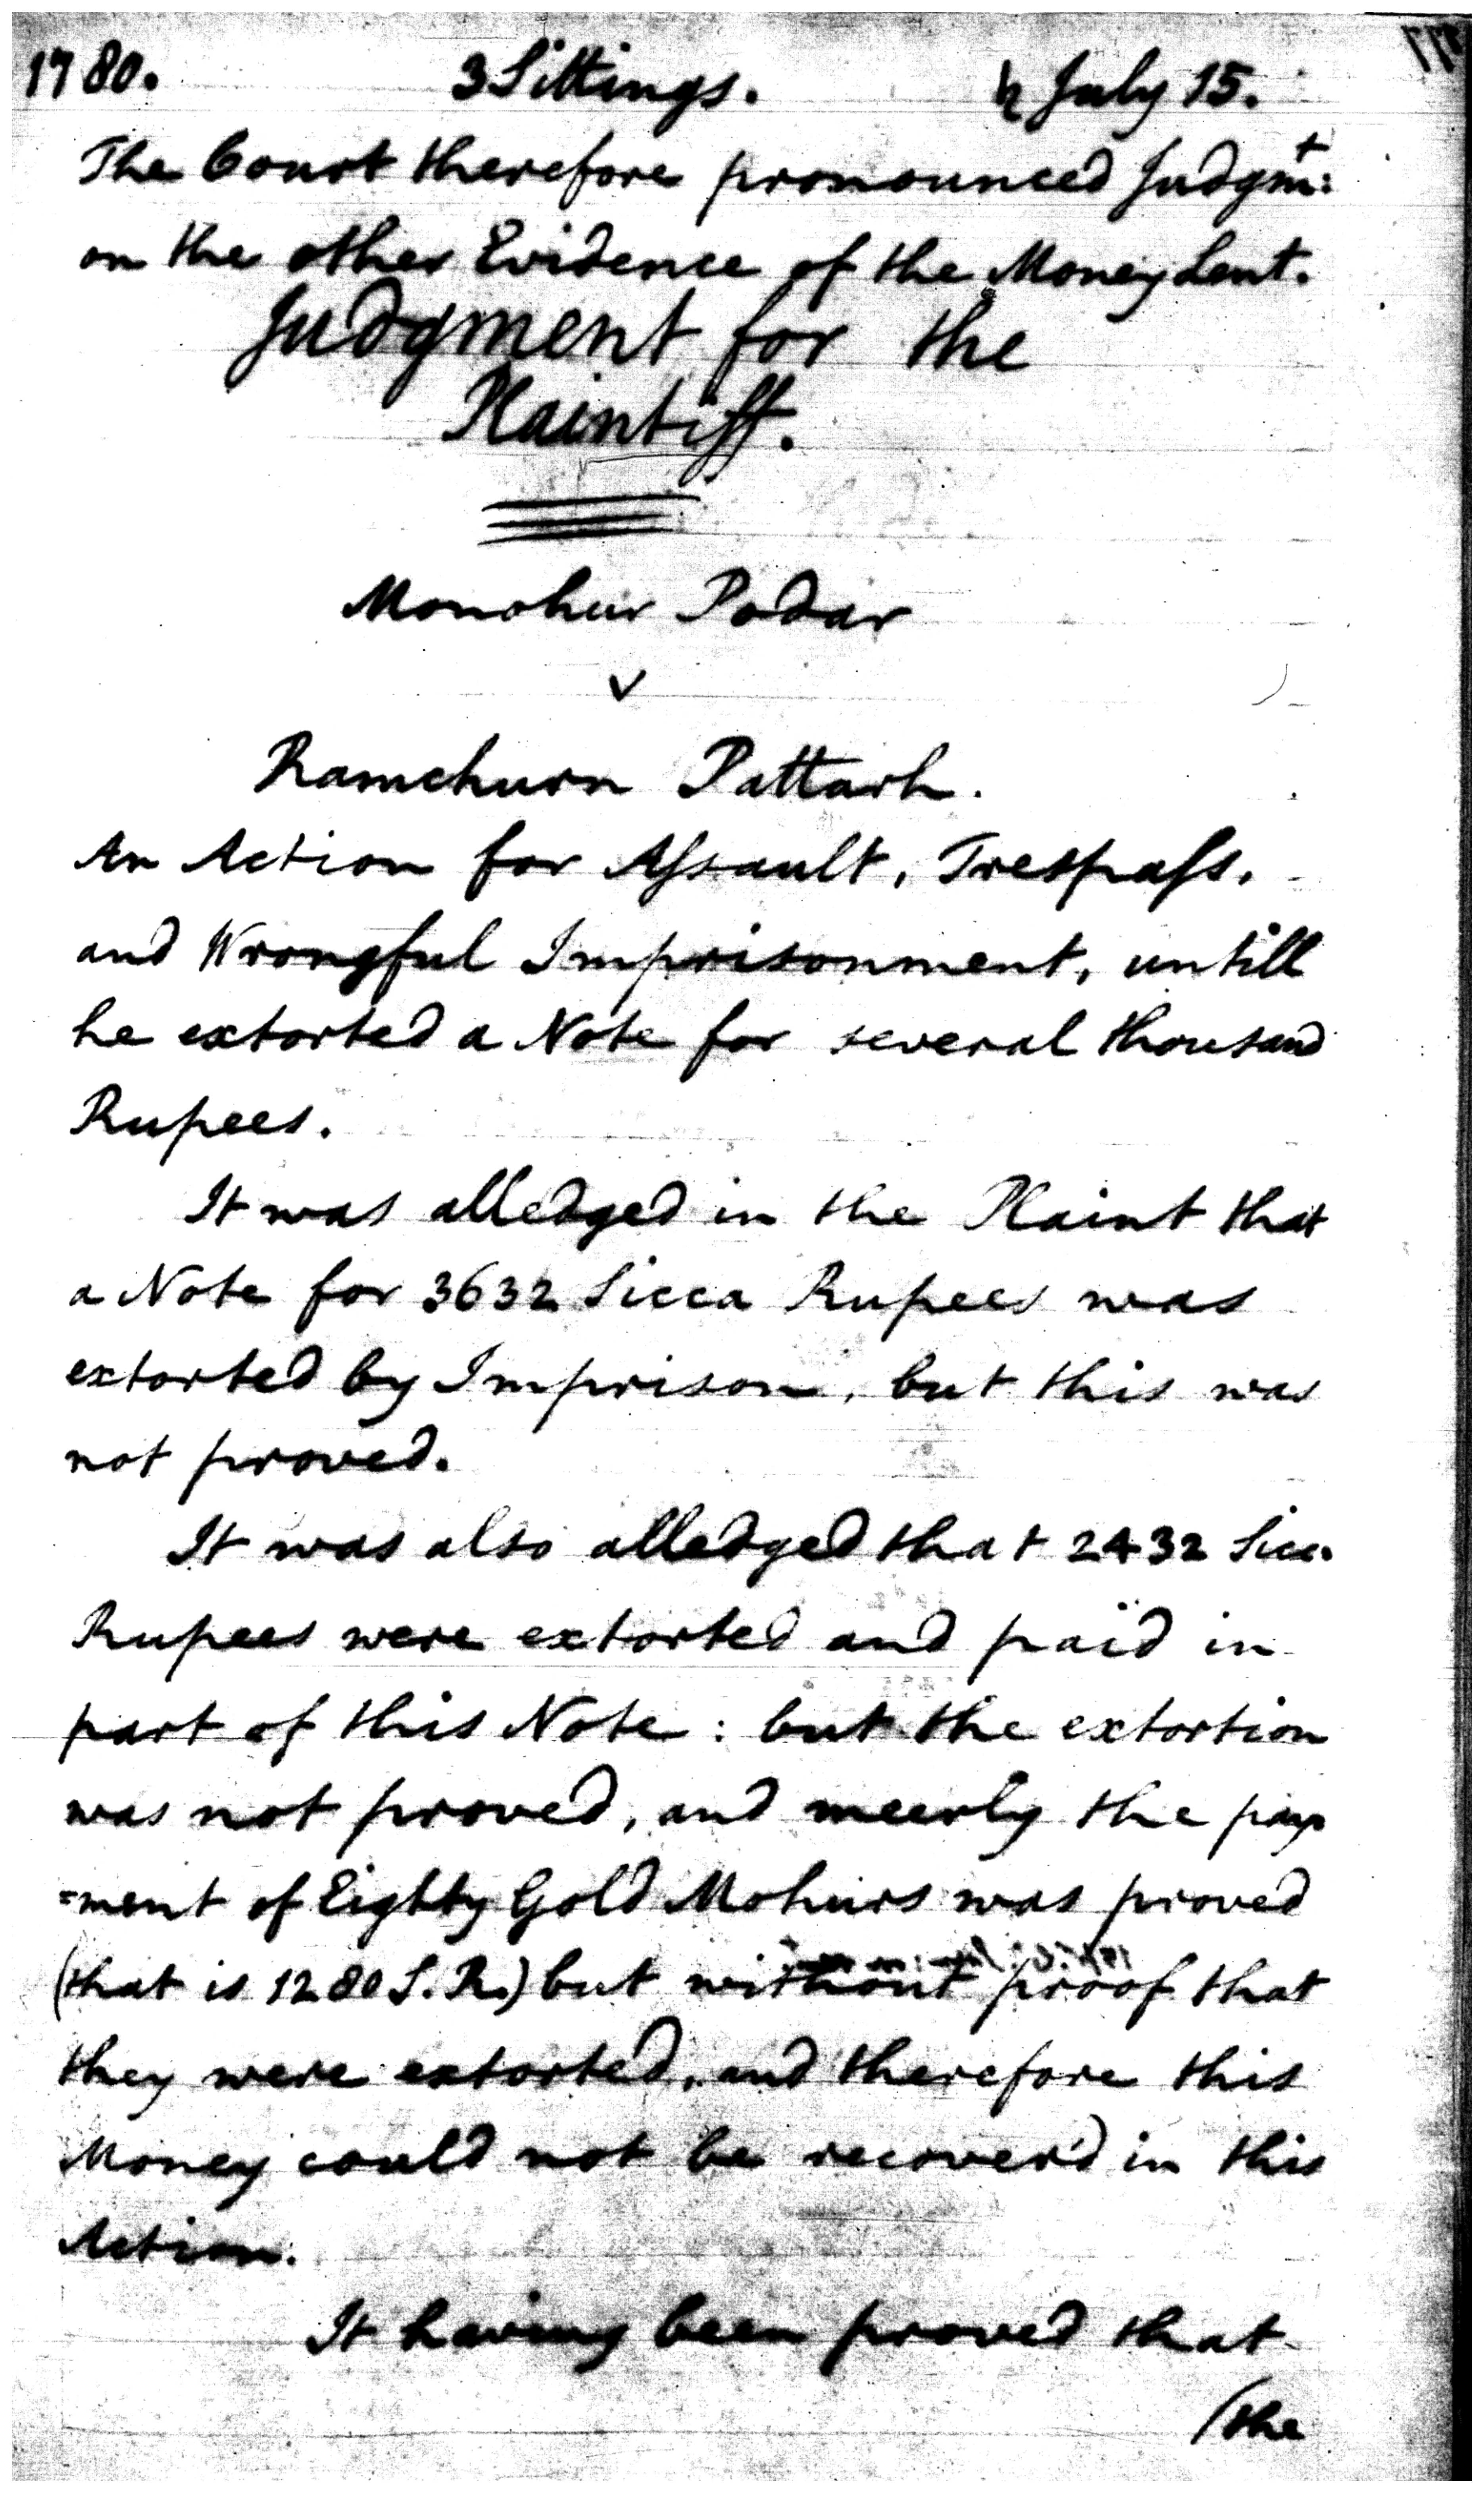 1780. 3 Sittings. ♄ July 15.
The Court therefore pronounced Judgmt:
on the other Evidence of the Money Lent.
Judgment for the
Plaintiff.
Monohur Podar
v
Ramchurn Pattarh.
An Action for Aſsault, Trespaſs,
and Wrongful Imprisonment, untill
he extorted a Note for several thousand
Rupees.
It was alledged in the Plaint that
a Note for 3632 Sicca Rupees was
extorted by Imprison, but this was
not proved.
It was also alledged that 2432 Sicc.
Rupees were extorted and paid in
part of this Note: but the extortion
was not proved, and meerly the pay
=ment of Eighty Gold Mohurs was proved
(that is 1280 S. R.) but without proof that
they were extorted, and therefore this
Money could not be recover'd in this
Action.
It having been proved that
(the